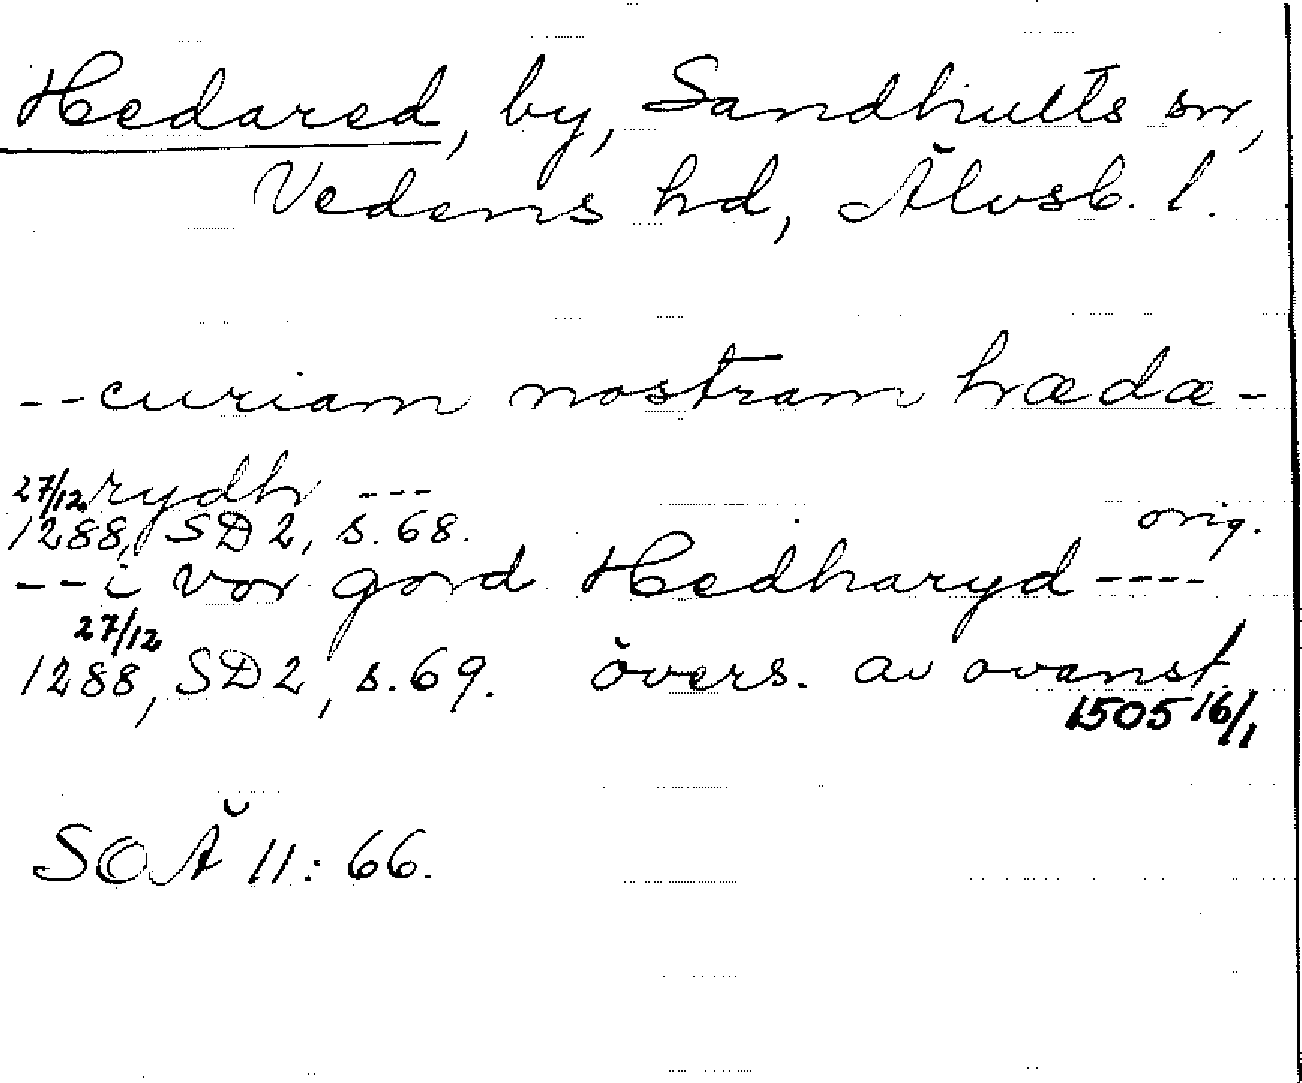 Hedared, by, Sandhults sn,
Vedens hd, Älvsb. l.
--curiam nostram hædæ-
rydh ---
27/12 1288, SD 2, s. 68. orig.
--i vor gord Hedharyd ----
27/12
1288, SD 2, s. 69. övers. av ovanst.
1505 16/1
SOÄ 11: 66.